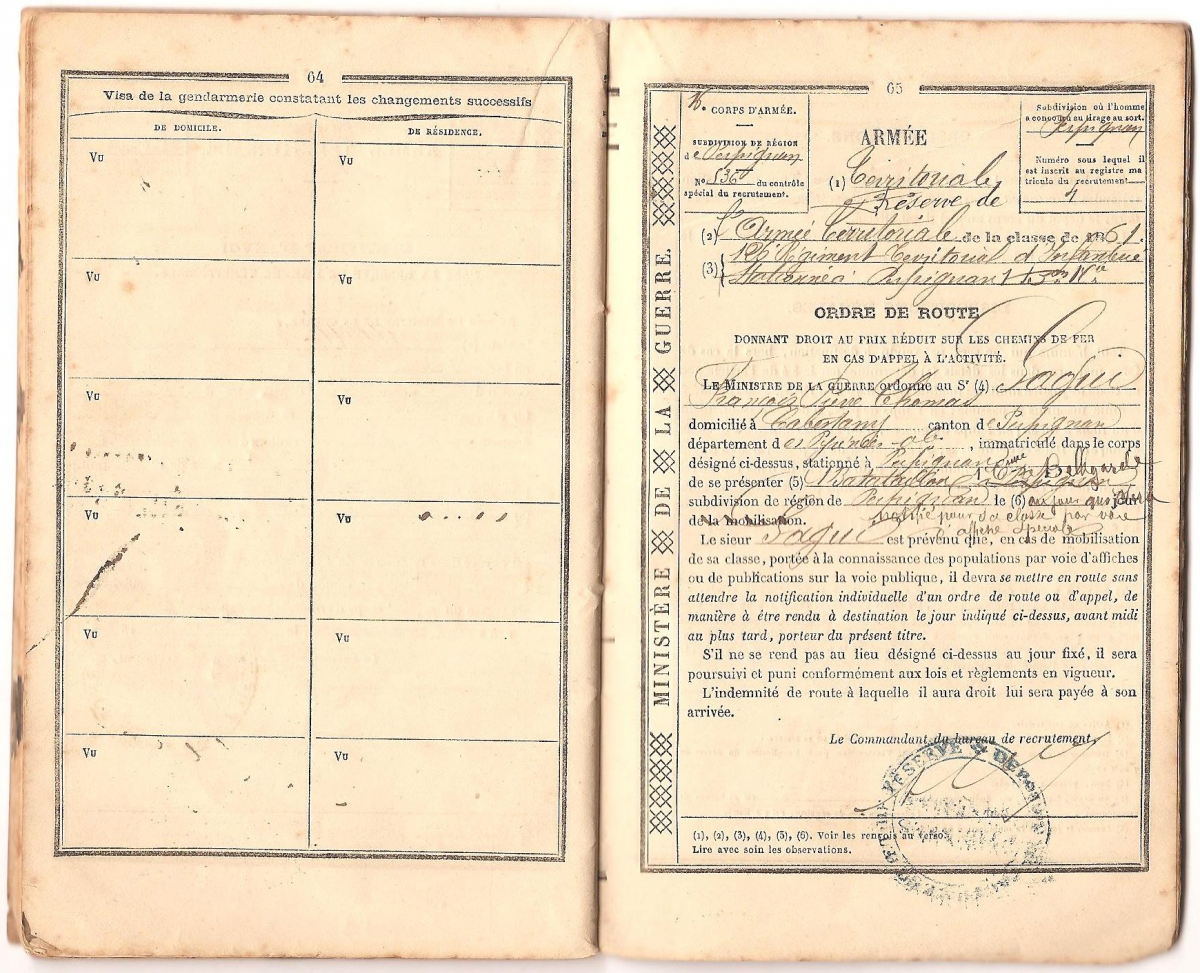 64
Visa de la gendarmerie constatant les changements successifs
DE DOMICILE. DE RÉSIDENCE.
Vu Vu
Vu Vu
Vu Vu
Vu Vu
Vu Vu
Vu Vu
65
MINISTÈRE DE LA GUERRE.
CORPS D'ARMÉE.
SUBDIVISION DE RÉGION
de Perpignan
No 536 du contrôle
spécial du recrutement.
ARMÉE
(1) Territoriale
Réserve de
Subdivision où l'homme
a concouru au tirage au sort.
Perpignan
Numéro sous lequel il
est inscrit au registre ma
tricule du recrutement
4
(2) l'Armée territoriale de la classe de 1861.
(3) Régiment Territorial d'Infanterie
Stationné à Perpignan
ORDRE DE ROUTE
DONNANT DROIT AU PRIX RÉDUIT SUR LES CHEMINS DE FER
EN CAS D'APPEL À L'ACTIVITÉ.
LE MINISTRE DE LA GUERRE ordonne au Sr (4) Sagui
François Pierre Thomas
domicilié à Cabestany canton de Perpignan
département des Pyrénées-Ol., immatriculé dans le corps
désigné ci-dessus, stationné à Perpignan
de se présenter (5) 1 Bataillon 1 Cie Bellegarde
subdivision de région de Perpignan le (6) au jour qui sera
de la mobilisation. notifié pour sa classe par voie
d'affiche Spéciale
Le sieur Sagui est prévenu que, en cas de mobilisation
de sa classe, portée à la connaissance des populations par voie d'affiches
ou de publications sur la voie publique, il devra se mettre en route sans
attendre la notification individuelle d'un ordre de route ou d'appel, de
manière à être rendu à destination le jour indiqué ci-dessus, avant midi
au plus tard, porteur du présent titre.
S'il ne se rend pas au lieu désigné ci-dessus au jour fixé, il sera
poursuivi et puni conformément aux lois et règlements en vigueur.
L'indemnité de route à laquelle il aura droit lui sera payée à son
arrivée.
Le Commandant du bureau de recrutement,
RÉSERVE
(1), (2), (3), (4), (5), (6). Voir les renvois au verso.
Lire avec soin les observations.